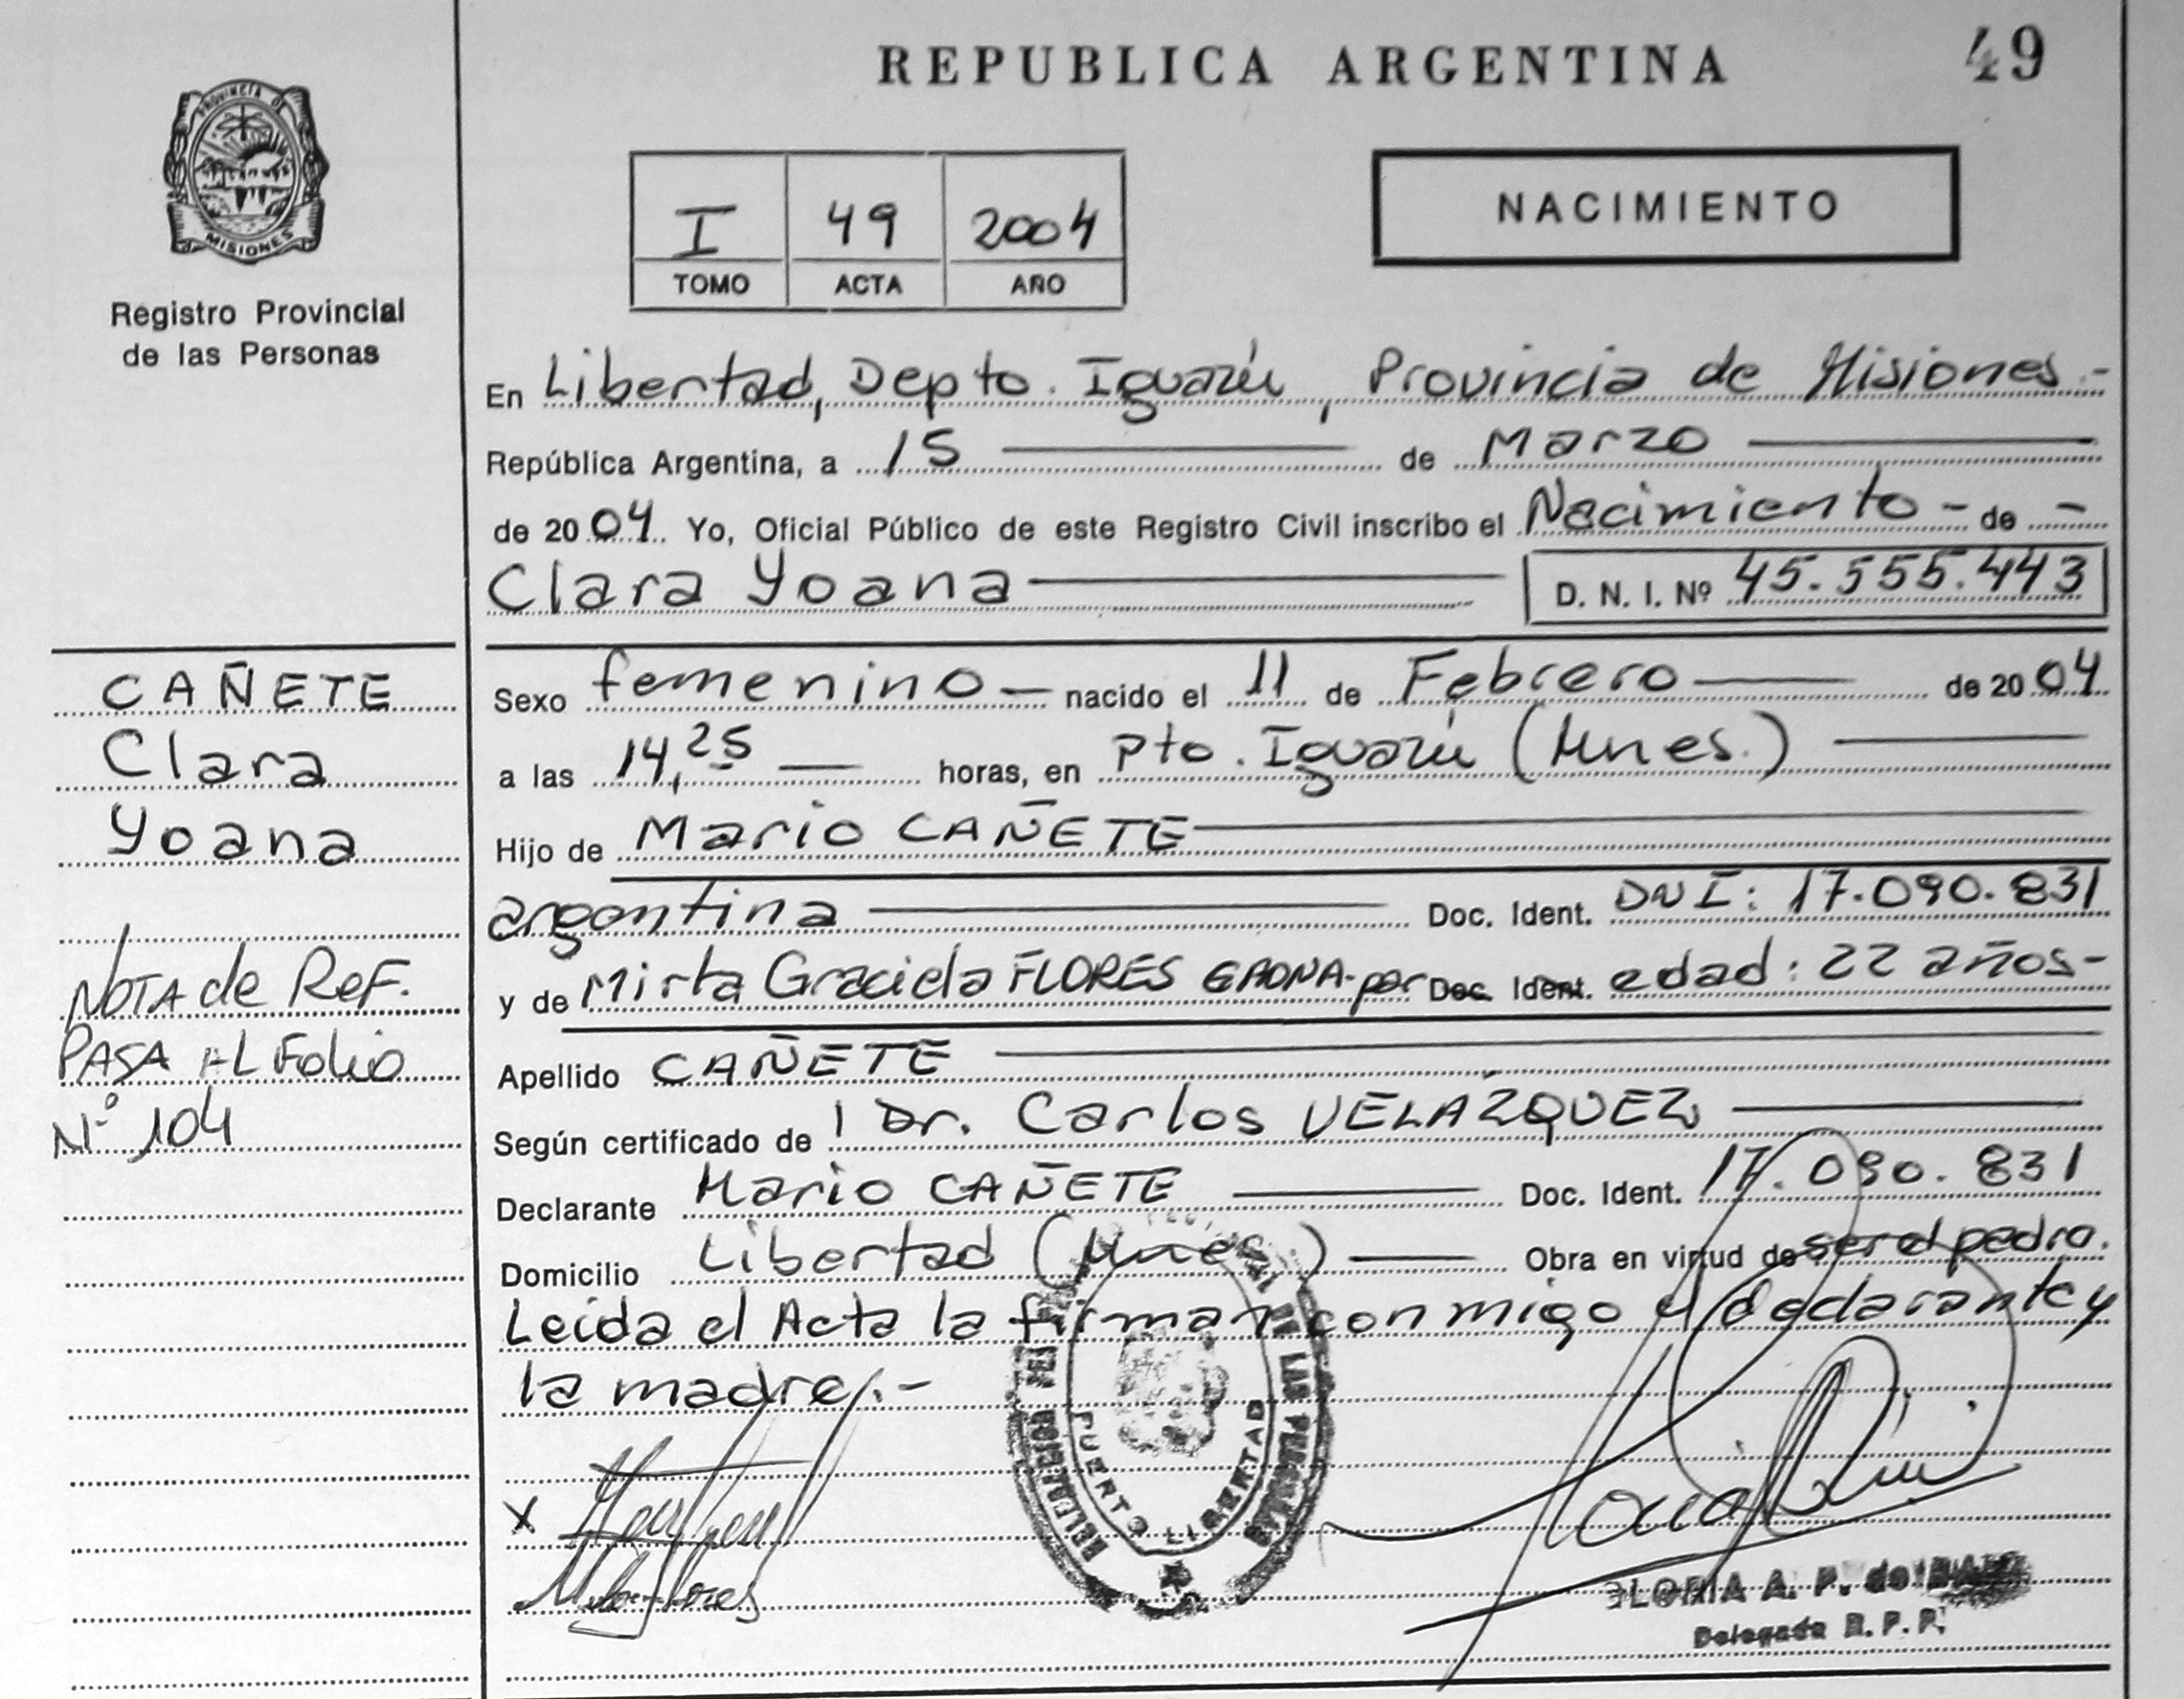 REPUBLICA ARGENTINA
49
PROVINCIA DE
MISIONES
Registro Provincial
de las Personas
I 49 2004
TOMO ACTA AÑO
NACIMIENTO
En Libertad, Depto. Iguazú, Provincia de Misiones.-
República Argentina, a 15 de Marzo
de 2004. Yo, Oficial Público de este Registro Civil inscribo el Nacimiento - de -
Clara Yoana D. N. I. Nº 45.555.443
CAÑETE
Clara
Yoana
NOTA de Ref.
PASA AL Folio
Nº 104
Sexo femenino - nacido el 11 de Febrero de 2004
a las 14,25 horas, en Pto. Iguazú (Mnes.)
Hijo de Mario CAÑETE
argentina Doc. Ident. DNI: 17.090.831
y de Mirta Graciela FLORES GAONA-por Doc. Ident. edad: 22 años-
Apellido CAÑETE
Según certificado de Dr. Carlos VELÁZQUEZ
Declarante Mario CAÑETE Doc. Ident. 17.090.831
Domicilio Libertad (Mnes.) Obra en virtud de ser el padre.
Leída el Acta la firman conmigo el declarante y
la madre.-
DE LAS PERSONAS
PUERTO LIBERTAD
X
GLORIA A. P. de
Delegada R. P. P.